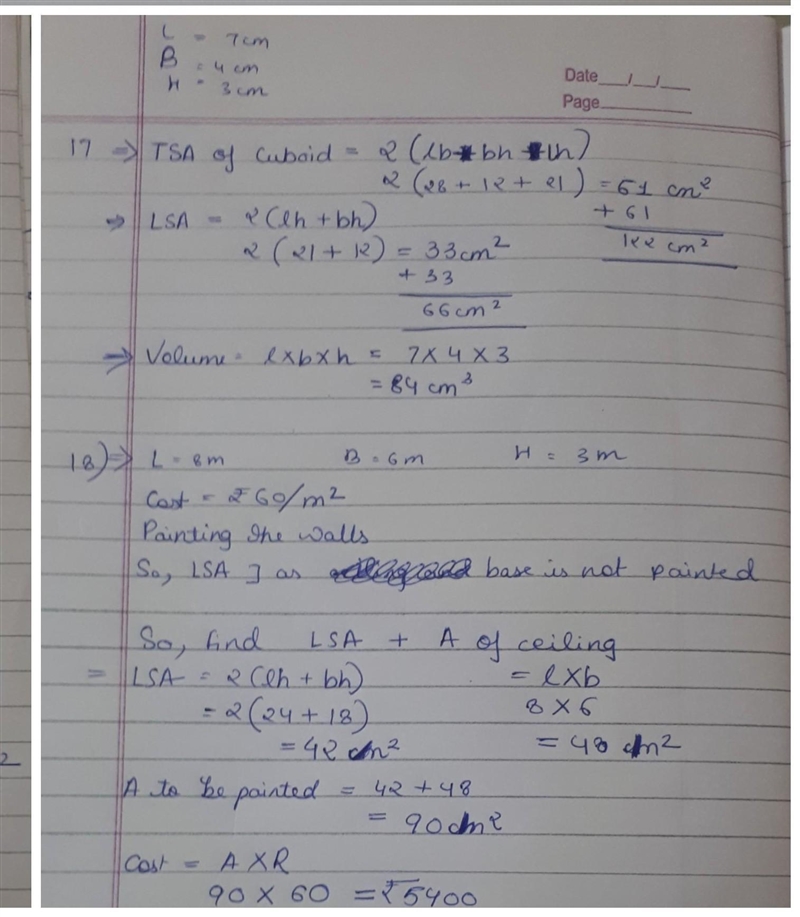 L = 7cm
B = 4 cm
H = 3cm
Date__/__/__
Page
17 ⇒ TSA of Cuboid = 2 (lb + bh + lh)
2 (28 + 12 + 21) = 61 cm²
+ 61
122 cm²
⇒ LSA = 2(lh + bh)
2 (21 + 12) = 33cm²
+ 33
66cm²
⇒ Volume = l×b×h = 7 × 4 × 3
= 84 cm³
18) ⇒ L = 8m B = 6m H = 3m
Cost = ₹60/m²
Painting the walls
So, LSA ] as base is not painted
So, find LSA + A of ceiling
= LSA = 2(lh + bh) = l×b
= 2(24 + 18) 8 × 6
= 42 m² = 48 m²
A to be painted = 42 + 48
= 90 m²
Cost = A × R
90 × 60 = ₹5400
2